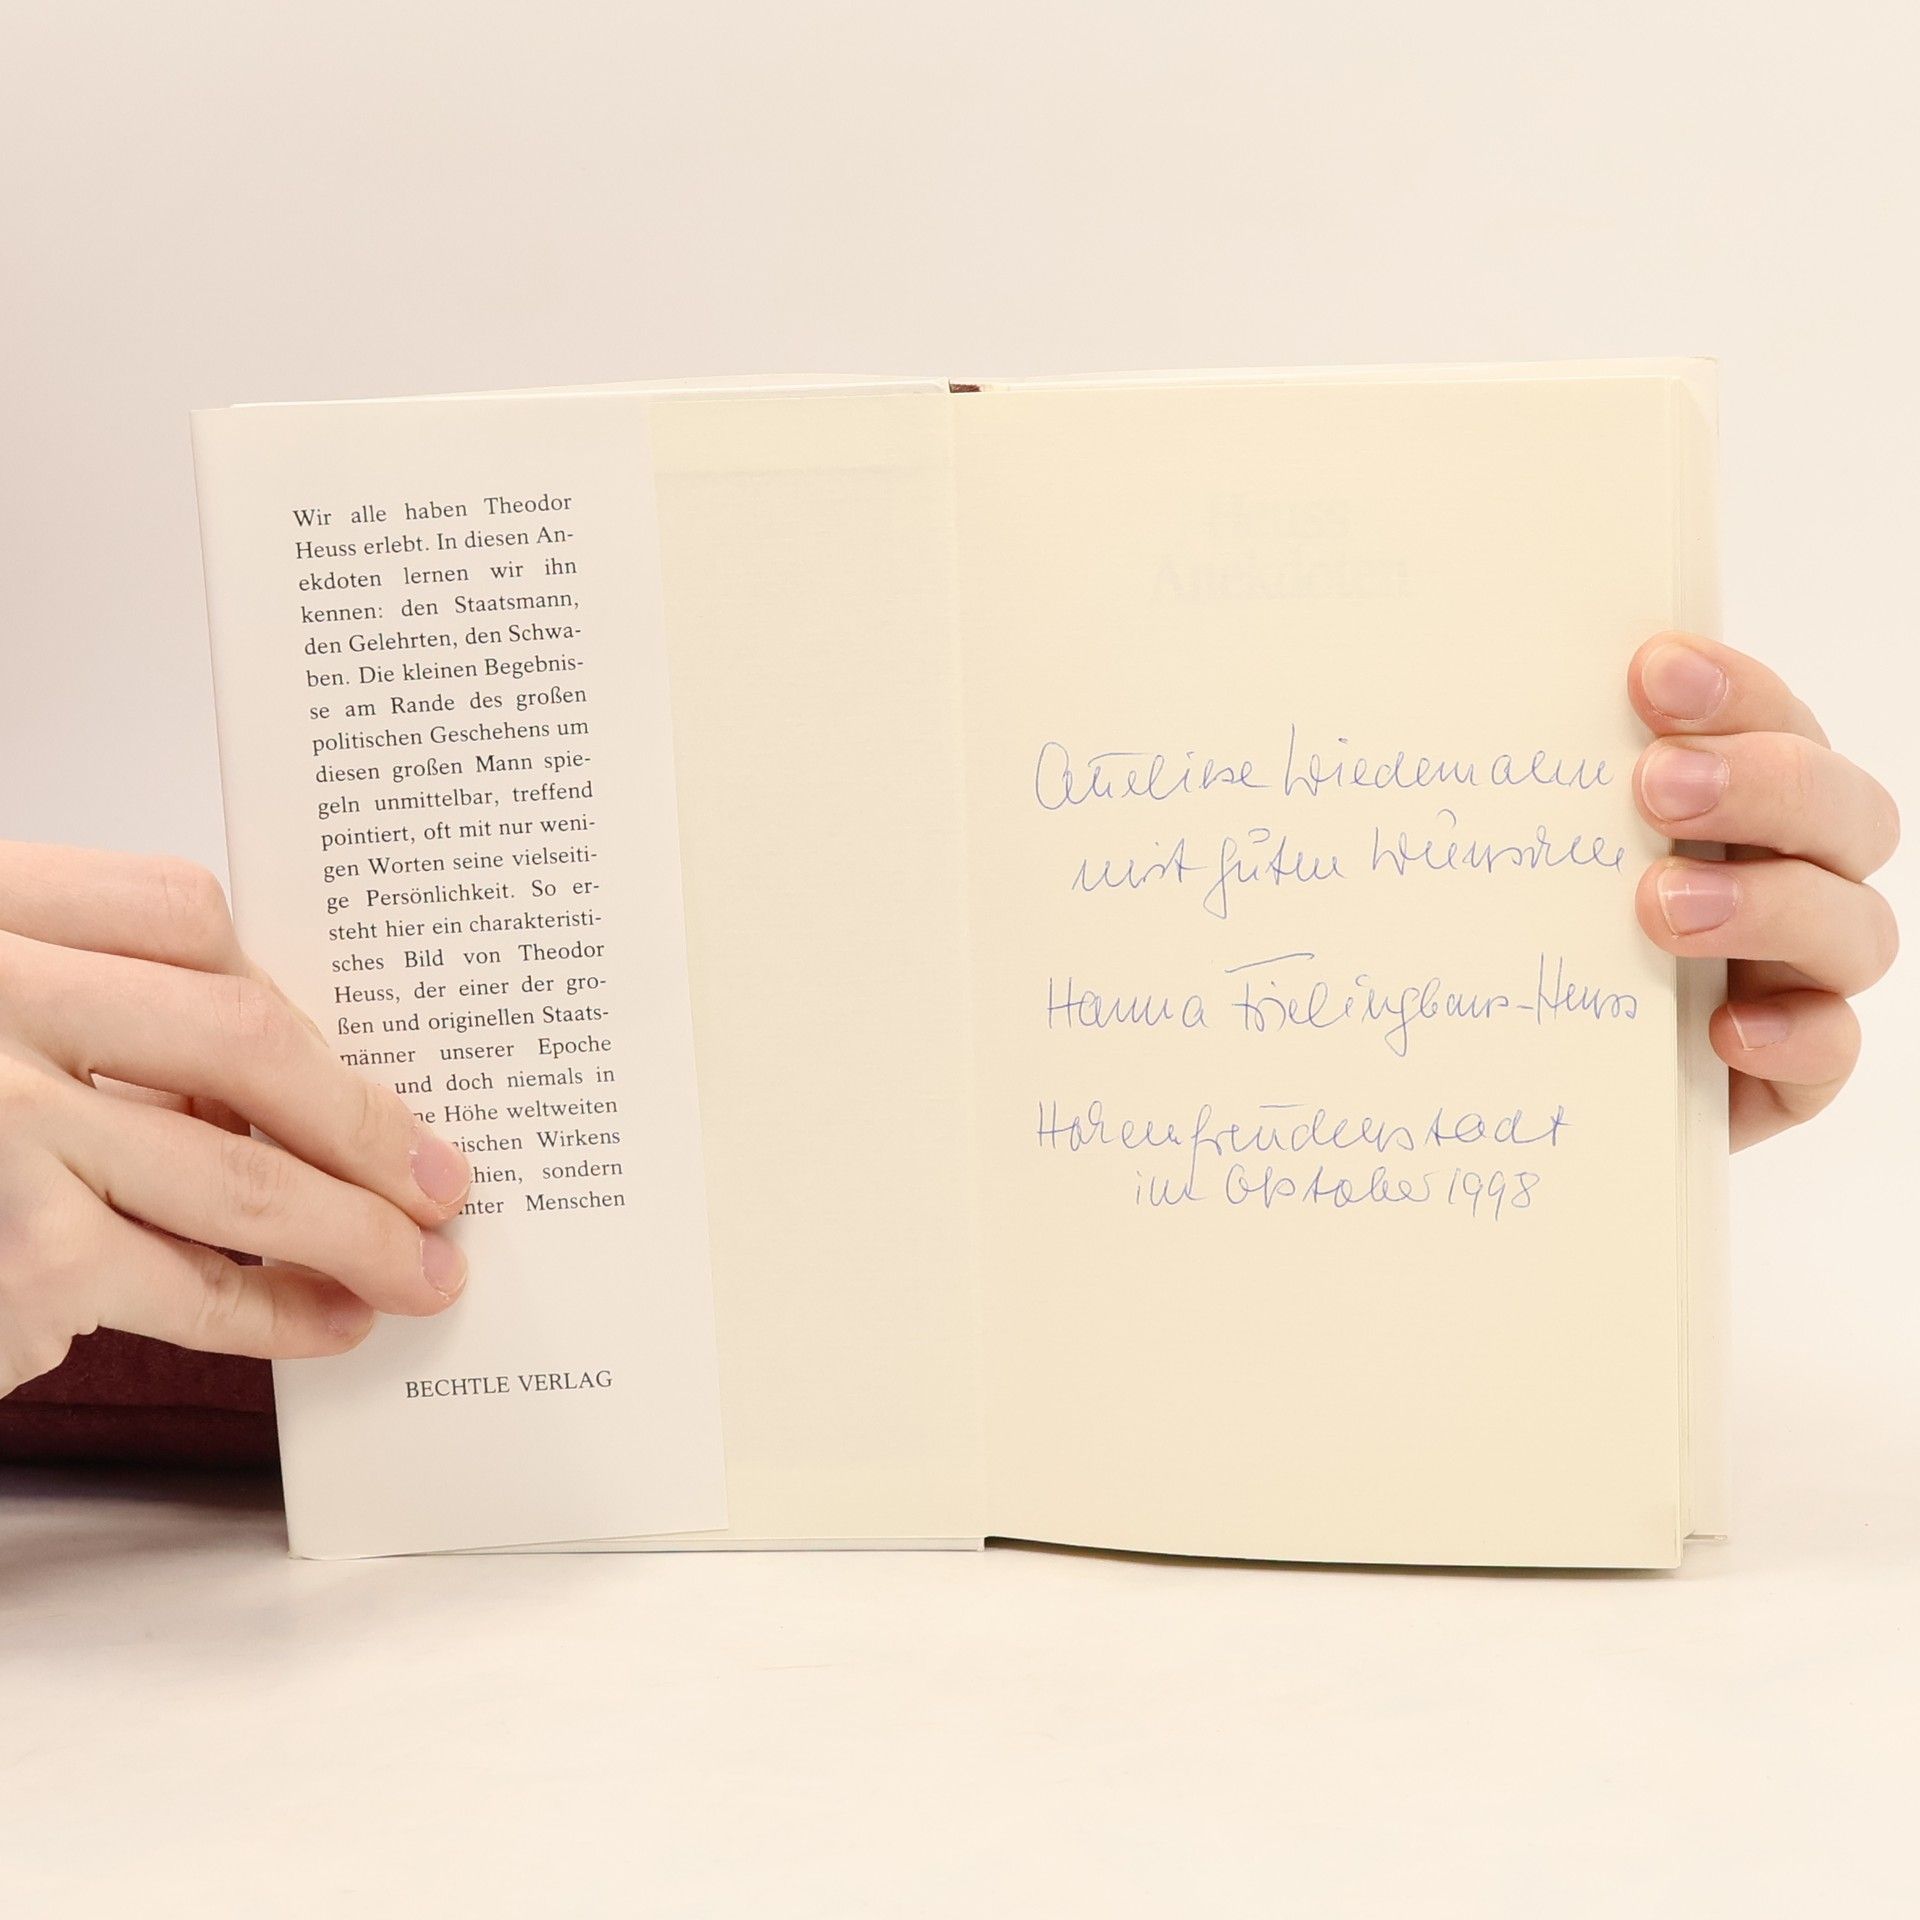 Wir alle haben Theodor
Heuss erlebt. In diesen An-
ekdoten lernen wir ihn
kennen: den Staatsmann,
den Gelehrten, den Schwa-
ben. Die kleinen Begebnis-
se am Rande des großen
politischen Geschehens um
diesen großen Mann spie-
geln unmittelbar, treffend
pointiert, oft mit nur weni-
gen Worten seine vielseiti-
ge Persönlichkeit. So er-
steht hier ein charakteristi-
sches Bild von Theodor
Heuss, der einer der gro-
ßen und originellen Staats-
männer unserer Epoche
und doch niemals in
Höhe weltweiten
Wirkens
sondern
Menschen
BECHTLE VERLAG
Heuss
Anekdoten
Anneliese Wiedemann
mit guten Wünschen
Hanna Frielinghaus-Heuss
Hohenfreudenstadt
im Oktober 1998